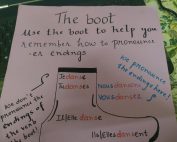 The boot
Use the boot to help you
remember how to pronounce
-er endings
Je danse
Tu danses
Il/elle danse
Nous dansons
Vous dansez
Ils/elles dansent
We pronounce
the endings here!
We don't
pronounce the
endings of
the verb
in the
boot!